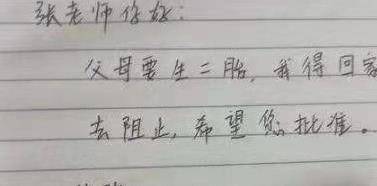 张老师你好：
父母要生二胎，我得回家
去阻止，希望您批准。